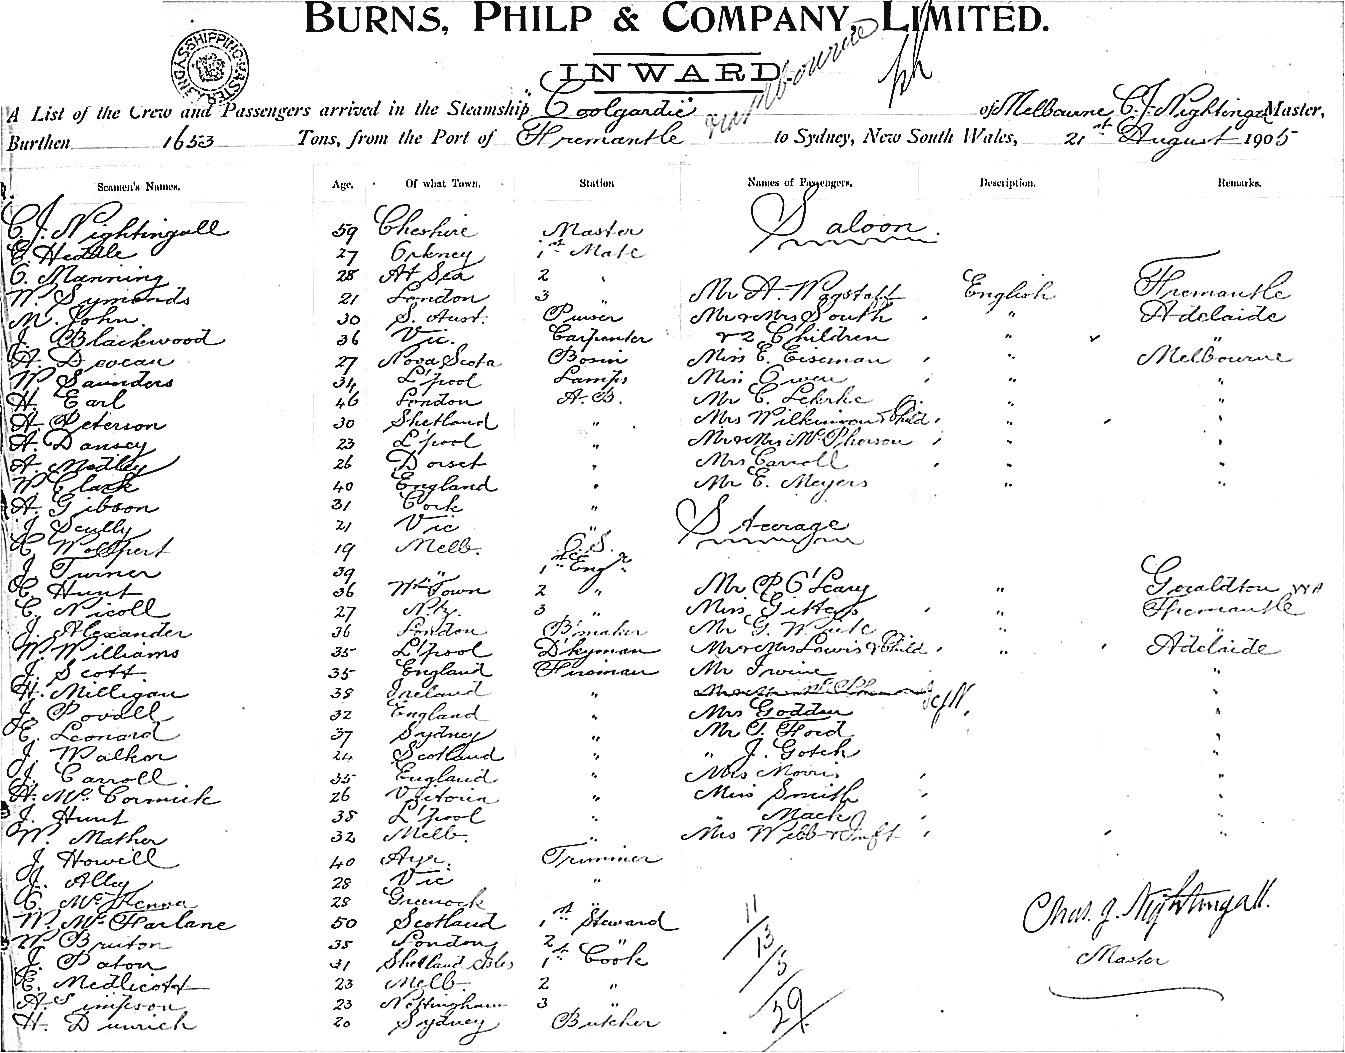 BURNS, PHILP & COMPANY, LIMITED.
INWARD.
SHIPPING MASTER SYDNEY
via Melbourne
A List of the Crew and Passengers arrived in the Steamship "Coolgardie" of Melbourne C. J. Nightingall Master,
Burthen 1653 Tons, from the Port of Fremantle to Sydney, New South Wales, 21st August 1905
Seamen's Names. Age. Of what Town. Station Names of Passengers. Description. Remarks.
Saloon.
C. J. Nightingall 59 Cheshire Master
E. Heddle 27 Orkney 1st Mate
C. Manning 28 At Sea 2 "
W. Symonds 21 London 3 " Mr A. Wagstaff English Fremantle
M. John. 30 S. Aust: Purser Mr & Mrs South " Adelaide
J. Blackwood 36 Vic. Carpenter & 2 Children " "
A. 27 Nova Scota Bosin Miss E. Eiseman " Melbourne
W. Saunders 34 L'pool Lamps Miss Owen " "
H. Earl 46 London A.B. Mr C. Lehrke " "
A. Peterson 30 Shetland " Mrs Wilkinson & Child " "
H. Dansey 23 L'pool " Mr & Mrs McPherson " "
A. Medley 26 Dorset " Mrs Carroll " "
W. Clark 40 England " Mr E. Meyers " "
A. Gibson 31 Cork "
J. Scully 21 Vic " Steerage
C. 19 Melb. O.S.
J. Turner 39 " 1st Engr
C. Hunt 36 Wm Town 2 " Mr P. O'Leary " Geraldton WA
C. Nicoll 27 N.Z. 3 " Miss Gitters " Fremantle
J. Alexander 36 London B'maker Mr G. White " "
W. Williams 35 L'pool D'kyman Mr & Mrs Lewis & Child " Adelaide
J. Scott. 35 England Fireman Mr Irvine "
H. Milligan 38 Ireland " "
J. Povall 32 England " Mrs Godden "
E. Leonard 37 Sydney " Mr T. Ford "
J. Walker 24 Scotland " " J. Gotch "
J. Carroll 35 England " Mrs Morris "
H. McCormick 26 Victoria " Miss Smith "
J. Hunt 38 L'pool " " Mack "
W. Mather 32 Melb. " Mrs Webb & Inft "
J. Howell 40 Ayr. Trimmer
J. Alley 28 Vic "
C. McKenna 28 Greenock "
W. McFarlane 50 Scotland 1st Steward
W. Bruton 38 London 2 "
J. Paton 31 Shetland Isles 1st Cook
E. Medlicott 23 Melb. 2 "
A. Simpson 23 Nottingham 3 "
H. 20 Sydney Butcher
11/13/5/29.
Chas. J. Nightingall.
Master